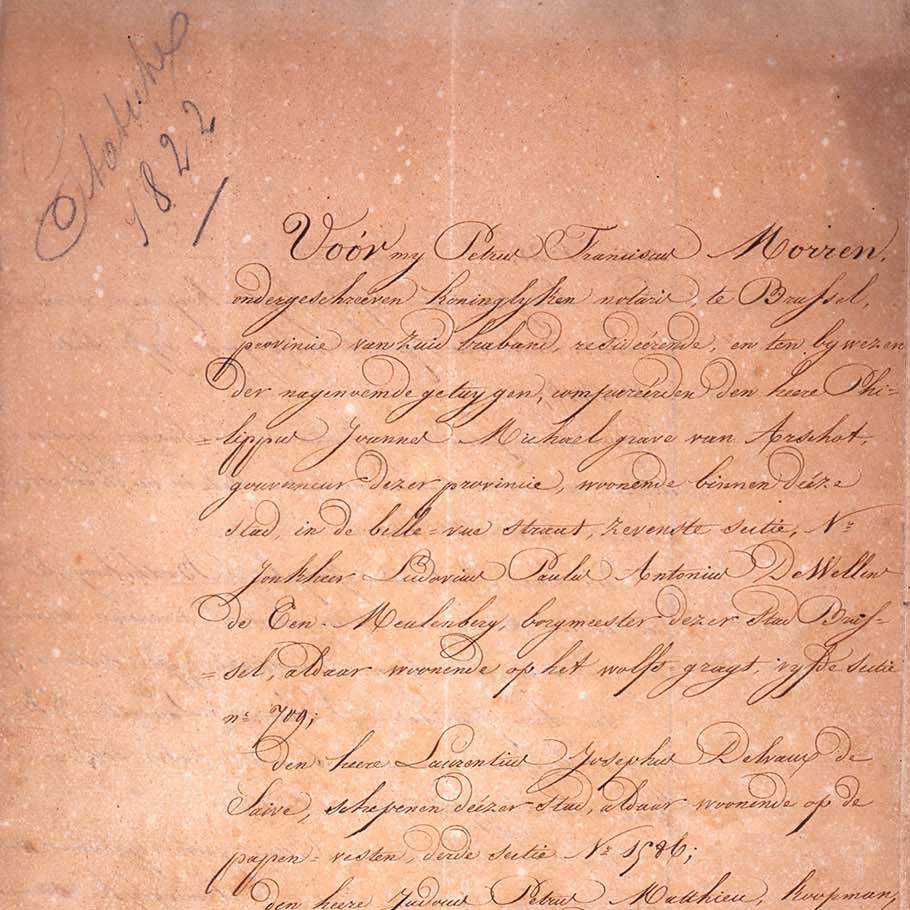 Statuts
1822
Voór my Petrus Franciscus Morren,
ondergeschreeven koninglyken notaris, te Brussel,
provincie van Zuid braband, resideérende, en ten bywezen
der nagenoemde getuygen, compareérden den heere Phi=
=lippus Joannes Michael, grave van Arschot,
gouverneur dezer provincie, woonende binnen deéze
stad, in de belle=vue straat, zevenste sectie, N.º
Jonkheer Ludovicus Paulus Antonius De Wellens
de Ten-Meulenberg, borgmeester dezer stad Brus=
=sel, aldaar woonende op het wolfs-gragt, vyfde sectie
n.º 709;
den heere Laurentius Josephus Delvaux de
Saive, schepenen deézer stad, aldaar woonende op de
papen=vesten, derde sectie N.º 1586;
den heere Judocus Petrus Matthieu, koopman,